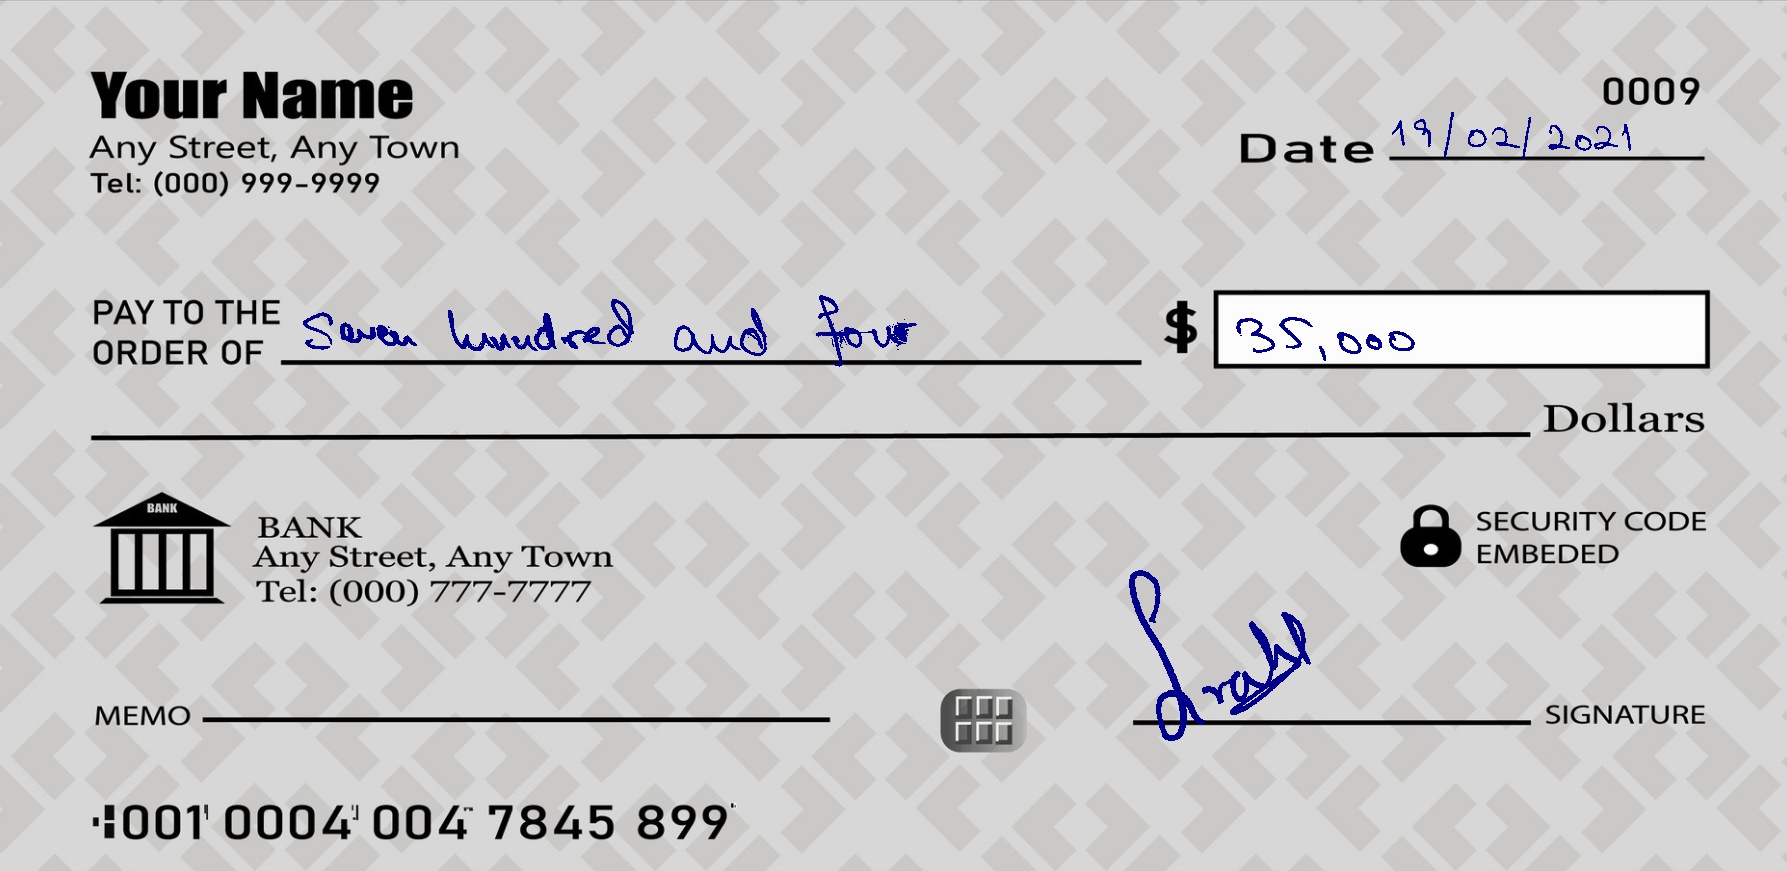 Your Name
Any Street, Any Town
Tel: (000) 999-9999
0009
Date 19/02/2021
PAY TO THE
ORDER OF Seven hundred and four $ 35,000
Dollars
BANK
BANK
Any Street, Any Town
Tel: (000) 777-7777
SECURITY CODE
EMBEDED
MEMO
SIGNATURE
001 0004 004 7845 899